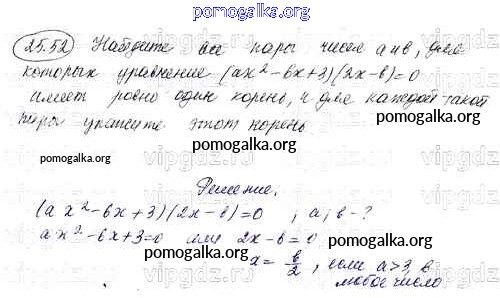 pomogalka.org
25.52 Найдите все пары чисел а и в, для
которых уравнение (ax²-6x+3)(2x-в)=0
имеет ровно один корень, и для каждой такой
пары укажите этот корень
pomogalka.org
pomogalka.org
pomogalka.org
Решение.
(ax²-6x+3)(2x-в)=0 , a; в-?
ax²-6x+3=0 или 2x-в=0
x= в/2, если a>3, в
любое число
pomogalka.org
pomogalka.org